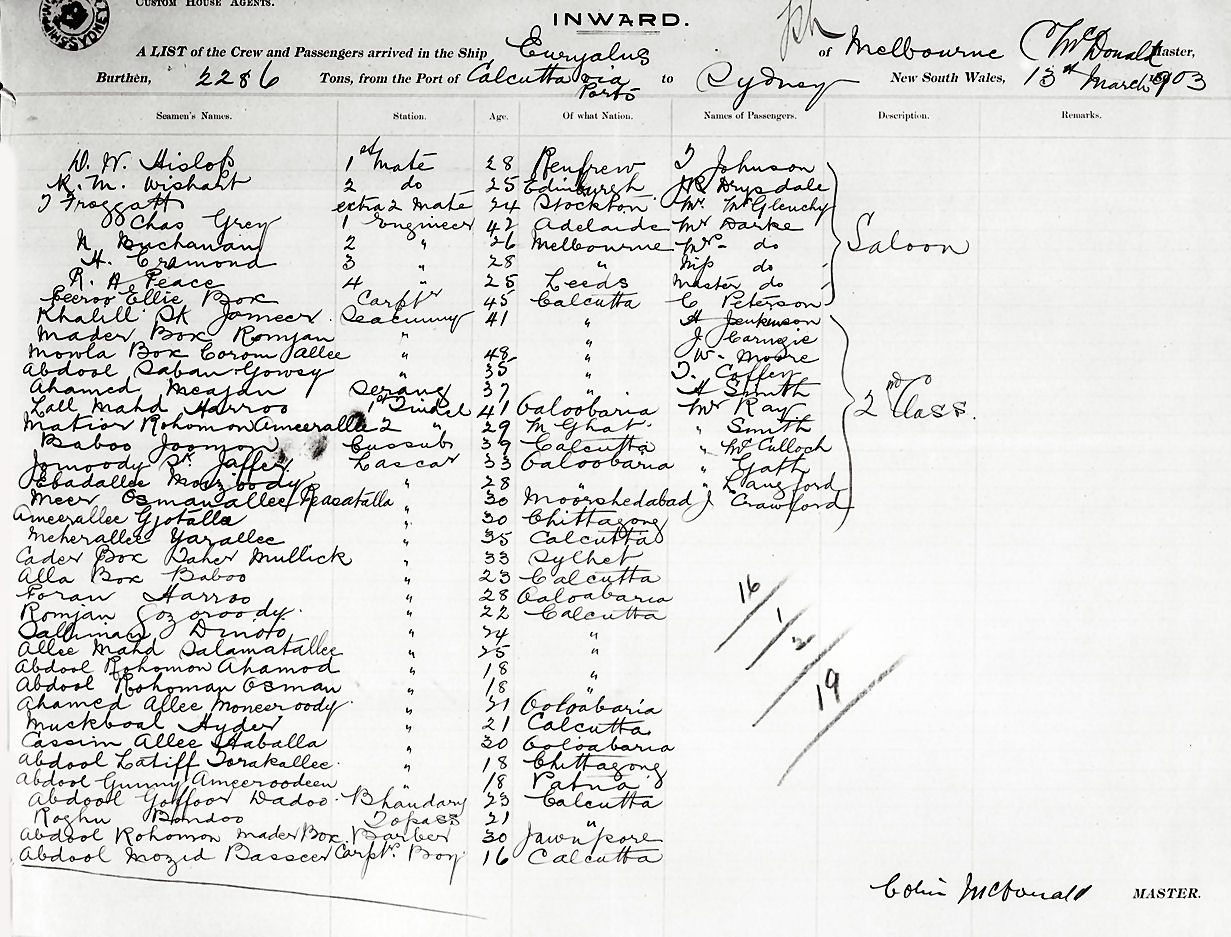 CUSTOM HOUSE AGENTS.
INWARD.
A LIST of the Crew and Passengers arrived in the Ship Euryalus of Melbourne C McDonald Master,
Burthen, 2286 Tons, from the Port of Calcutta via Ports to Sydney New South Wales, 13th March 1903
Seamen's Names. Station. Age. Of what Nation. Names of Passengers. Description. Remarks.
D. W. Hislop 1st Mate 28 Renfrew T Johnson
R. M. Wishart 2 do 25 Edinburgh Drysdale
T Froggatt extra 2 mate 24 Stockton Mr. McGlenchy
Chas Grey 1 Engineer 42 Adelaide Mr Darke
N. Buchanan 2 " 26 Melbourne Mrs do Saloon
H. Ormond 3 " 28 " Miss do
R. A. Peace 4 " 25 Leeds Master do
Peeroo Ellie Box Carptr 45 Calcutta C Peterson
Khalill Sk Jameer Seacunny 41 " H Jenkinson
Mader Box Romjan " " J Carnegie
Mowla Box Corom Allee " 48 " W. Moore
Abdool Saban Gowsy " 35 " T. Coffey
Ahamed Meajan Serang 37 " H Smith
Lall Mahd Harroo 1st Tindel 41 Ooloobaria Mr Ray 2nd Class.
Matior Rohomon Ameerallee 2 " 29 M Ghat " Smith
Baboo Joomon Cussub 39 Calcutta " McCulloch
Jomoody Sk Jaffer Lascar 33 Ooloobaria " Gath
Ebadallee Moizoody " 28 " " Langford
Meer Osmanallee Reasatalla " 30 Moorshedabad J Crawford
Ameerallee Gjotalla " 30 Chittagong
Meherallee Yarallee " 35 Calcutta
Cader Box Taher Mullick " 33 Sylhet
Alla Box Baboo " 23 Calcutta
Foran Harroo " 28 Ooloobaria
Romjan Gozoroody " 22 Calcutta
Salliman Dinoto " 24 "
Allee Mahd Salamatallee " 25 "
Abdool Rohomon Ahamod " 18 "
Abdool Rohoman Osman " 18 "
Ahamed Allee Moneeroody " 21 Ooloobaria
Muckbool Hyder " 21 Calcutta
Cassim Allee Haballa " 30 Ooloobaria
Abdool Latiff Torakallee " 18 Chittagong
Abdool Gunny Ameeroodeen " 18 Patna
Abdool Goffoor Dadoo Bhandary 23 Calcutta
Roghu Bondoo Topass 21 "
Abdool Rohomon Mader Box Barber 30 Jawnpore
Abdool Mozid Basseer Carptr. Boy 16 Calcutta
16
1
2
19
Colin McDonald MASTER.